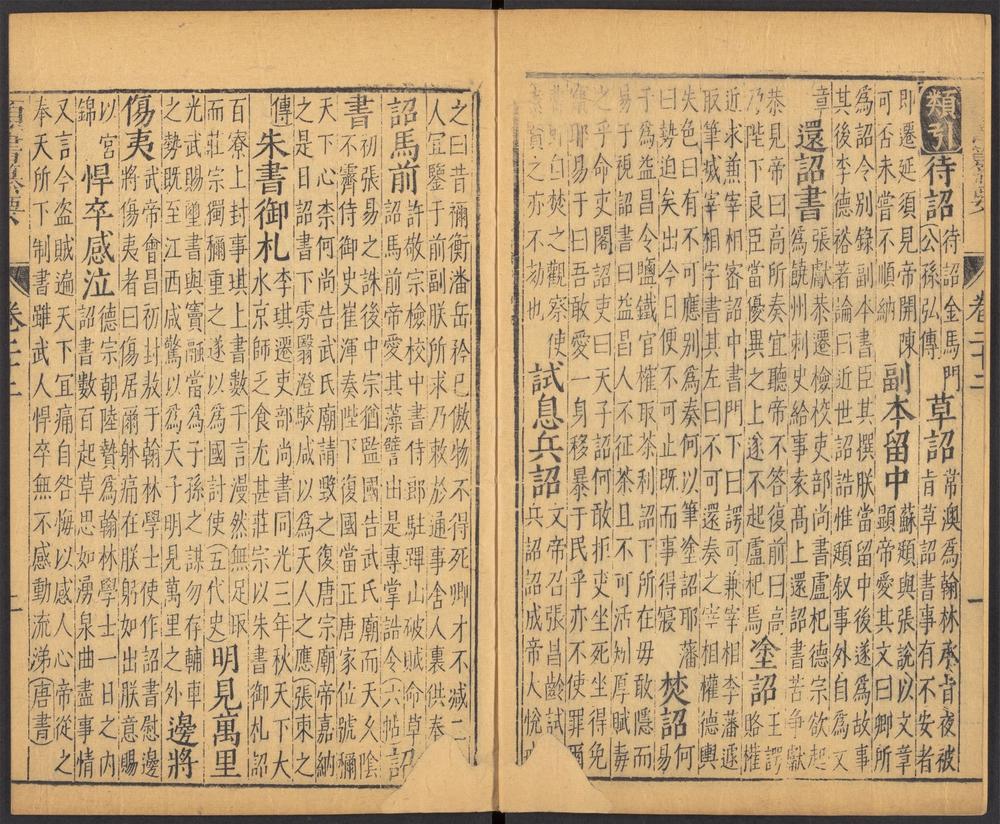 卷二十二
一
類引
待詔
待詔金馬門
公孫弘傳
草詔
常澳為翰林承旨夜被
旨草詔書事有不安者
即遷延須見帝開陳
可否未嘗不順納
副本留中
蘇頲與張說以文章
顯帝愛其文曰卿所
為詔令別錄副本書臣其撰朕當留中後遂為故事
其後李德裕著論曰近世詔誥惟頲叙事外自為文
章
還詔書
張獻恭遷檢校吏部尚書盧杞德宗欲起
為饒州刺史給事袁高上還詔書苦爭獻
恭見帝曰高所奏宜聽帝不答復前曰高
乃陛下良臣當優異之上遂不起盧杞焉
塗詔
王諤
賂權
近求兼宰相密詔中書門下曰諤可兼宰相李藩遽
取筆滅宰相字書其左曰不可還奏之宰相權德輿
失色曰有不可應別為奏何以筆塗詔耶藩
曰勢迫矣出今日便不可止既而事得寢
焚詔
何
易
于為益昌令鹽鐵官榷取茶利詔下所在毋敢隱而
易于視詔書曰益昌人不征茶且不可活矧厚賦毒
之乎命吏閣詔吏曰天子詔何敢拒吏坐死坐得免
竄耶易于曰吾敢愛一身移暴于民乎亦不使罪爾
即自焚之觀察使
素賢之亦不劾也
試息兵詔
文帝召張昌齡試
兵詔詔成帝大悅
之曰昔禰衡潘岳矜已傲物不得死卿才不減二
人冝鑒于前副朕所求乃敕於通事舍人裏供奉
詔馬前
許敬宗檢校中書侍郎駐蹕山破賊命草
詔馬前帝愛其藻譬出是專掌誥令(六帖
詔書
初張易之誅後中宗猶監國告武氏廟而天久陰
不霽侍御史崔渾奏陛下復國當正唐家位號稱
天下心柰何尚告武氏廟請毀之復唐宗廟帝嘉納
之是日詔書下雰翳澄駮咸以為天人之應(張柬之
傳
朱書御札
李琪遷吏部尚書同光三年秋天下大
水京師乏食尤甚莊宗以朱書御札詔
百寮上封事琪上書數千言漫然無足取
而莊宗獨稱重之遂以為國計使(五代史
明見萬里
光武賜璽書與竇融當為子孫之謀勿存輔車
之勢既至江西咸驚以為天子明見萬里之外
邊將傷夷
武帝會昌初封敖于翰林學士使作詔書慰邊
將傷夷者曰傷居爾躬痛在朕躬如出朕意賜
以宮
錦
悍卒感泣
德宗朝陸贄為翰林學士一日之內
詔書數百起草思如湧泉曲盡事情
又言今盜賊遍天下冝痛自咎悔以感人心帝從之
奉天所下制書雖武人悍卒無不感動流涕(唐書
卷二十二
一